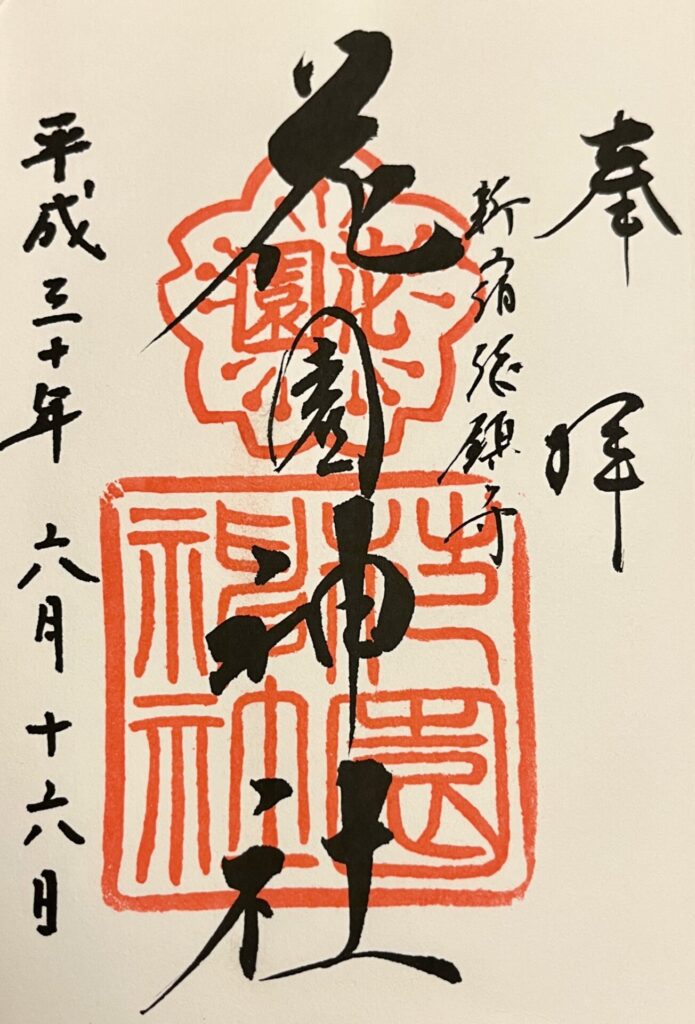 奉拝
新宿総鎮守
花園神社
花園
花園神社
平成三十年 六月十六日